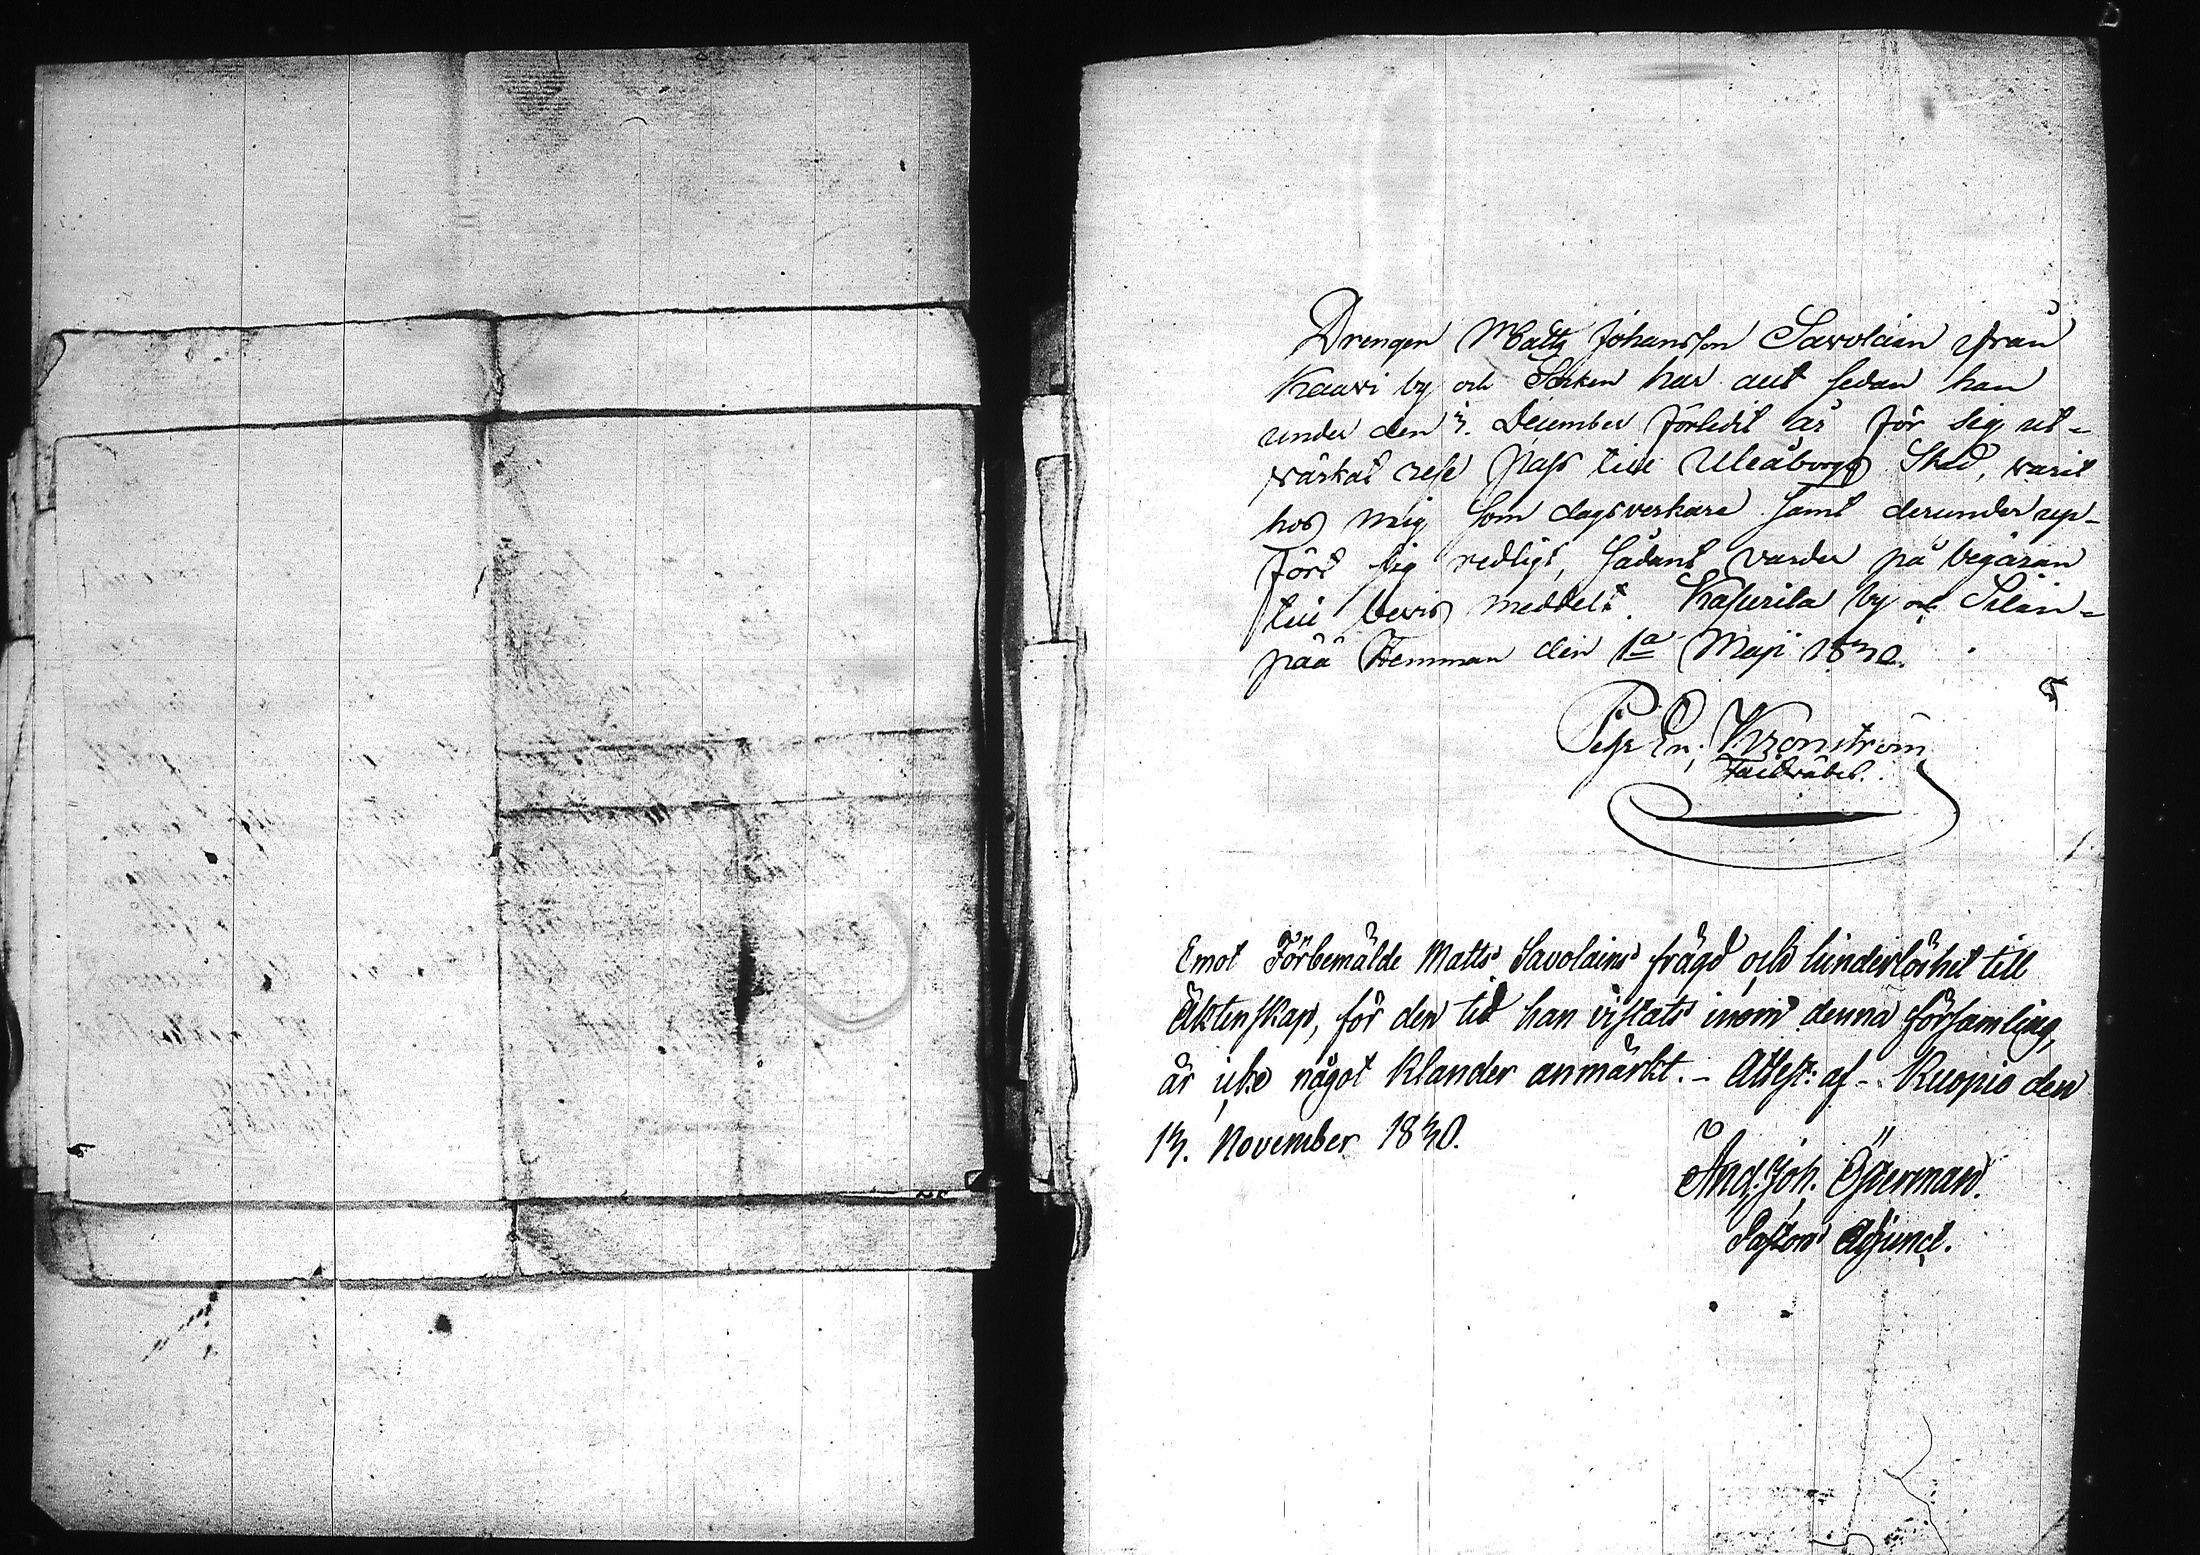 Drengen Matts Johansson Savolain från
Kaavi by och Sokken har alt sedan han
under den 3. December förledit år för sig ut-
värkat rese pass till Uleåborgs Stad, varit
hos mig som dagsverkare samt derunder up-
fört sig redligt, sådant varder på begäran
till bevis meddelt. Kasurila by och Silän-
pää Hemman den 1a Maji 1830.
Kronström
Faldväbel.
Emot Förbemälde Matts Savolains frägd och hinderlöshet till
Äktenskap, för den tid han vistats inom denna församling,
är icke något klander anmärkt. - Attest: af - Kuopio den
13. November 1830.
And. Joh. Österman.
Pastors Adjunct.